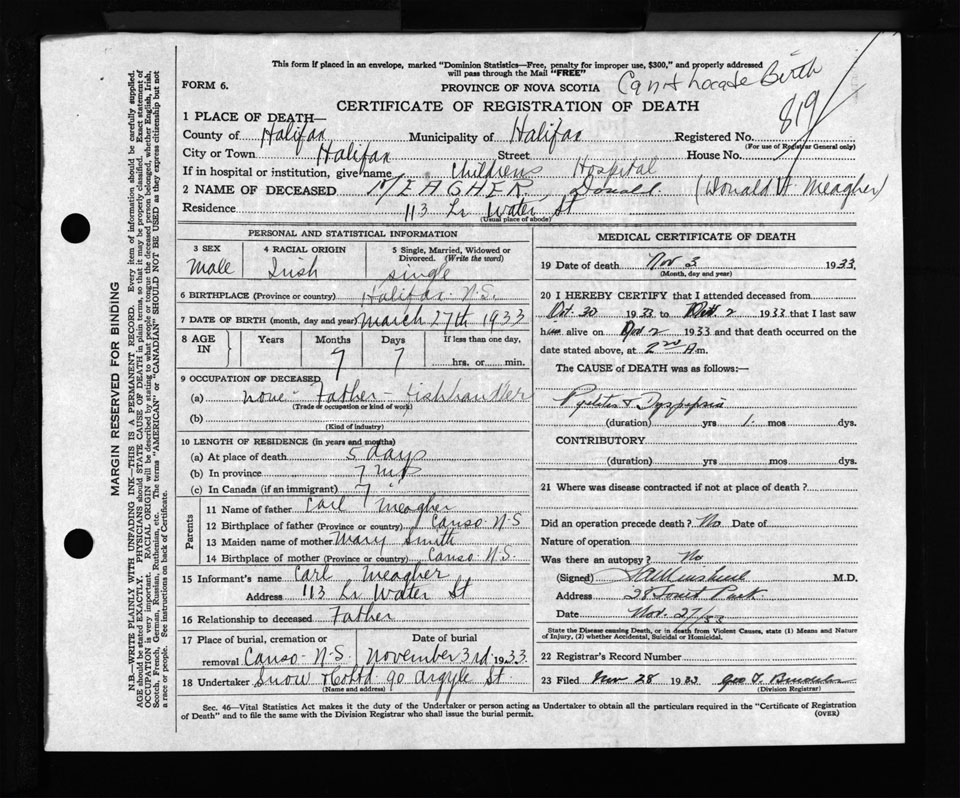 This form if placed in an envelope, marked "Dominion Statistics—Free, penalty for improper use, $300," and properly addressed
will pass through the Mail "FREE"
FORM 6.
PROVINCE OF NOVA SCOTIA
Cant Locate Birth
CERTIFICATE OF REGISTRATION OF DEATH
819
1 PLACE OF DEATH—
County of Halifax Municipality of Halifax Registered No.
(For use of Registrar General only)
City or Town Halifax Street House No.
If in hospital or institution, give name Childrens Hospital
2 NAME OF DECEASED MEAGHER, Donald. (Donald H. Meagher)
Residence 113 Lr Water St
(Usual place of abode)
PERSONAL AND STATISTICAL INFORMATION
3 SEX
Male
4 RACIAL ORIGIN
Irish
5 Single, Married, Widowed or
Divorced. (Write the word)
single
6 BIRTHPLACE (Province or country) Halifax N.S.
7 DATE OF BIRTH (month, day and year) March 27th 1933
8 AGE IN Years Months Days If less than one day,
7 7 hrs. or min.
9 OCCUPATION OF DECEASED
(a) none - Father - Fishhandler
(Trade or occupation or kind of work)
(b)
(Kind of industry)
10 LENGTH OF RESIDENCE (in years and months)
(a) At place of death 5 days
(b) In province 7 mts
(c) In Canada (if an immigrant) 7 "
Parents
11 Name of father Carl Meagher
12 Birthplace of father (Province or country) Canso N.S
13 Maiden name of mother Mary Smith
14 Birthplace of mother (Province or country) Canso N.S.
15 Informant's name Carl Meagher
Address 113 Lr Water St
16 Relationship to deceased Father
17 Place of burial, cremation or Date of burial
removal Canso N.S. November 3rd 1933
18 Undertaker Snow & Co Ltd 90 Argyle St.
(Name and address)
MEDICAL CERTIFICATE OF DEATH
19 Date of death Nov 3 1933
(Month, day and year)
20 I HEREBY CERTIFY that I attended deceased from
Oct. 30 1933 to Nov. 2 1933 that I last saw
him alive on Nov. 2 1933 and that death occurred on
date stated above, at 2 A.m.
The CAUSE of DEATH was as follows:—
Pyelitis & Dyspepsia
(duration) yrs 1 mos dys.
CONTRIBUTORY
(duration) yrs. mos dys.
21 Where was disease contracted if not at place of death?
Did an operation precede death? No Date of
Nature of operation
Was there an autopsy? No
(Signed) M.D.
Address 28 Park
Date Nov. 27/33
State the Disease causing Death, or in death from Violent Causes, state (1) Means and Nature
of Injury, (2) whether Accidental, Suicidal or Homicidal.
22 Registrar's Record Number
23 Filed Nov 28 1933 Geo T.
(Division Registrar)
Sec. 46—Vital Statistics Act makes it the duty of the Undertaker or person acting as Undertaker to obtain all the particulars required in the "Certificate of Registration
of Death" and to file the same with the Division Registrar who shall issue the burial permit.
(OVER)
MARGIN RESERVED FOR BINDING
N.B.—WRITE PLAINLY WITH UNFADING INK—THIS IS A PERMANENT RECORD. Every item of information should be carefully supplied.
AGE should be stated EXACTLY. PHYSICIANS should STATE CAUSE OF DEATH in plain terms, so that it may be properly classified. Exact statement of
OCCUPATION is very important. RACIAL ORIGIN will be described by stating to what people or tongue the deceased person belonged, whether English, Irish,
Scotch, French, German, Russian, Ruthenian, etc. The terms "AMERICAN" or "CANADIAN" SHOULD NOT BE USED as they express citizenship but not
a race or people. See instructions on back of Certificate.